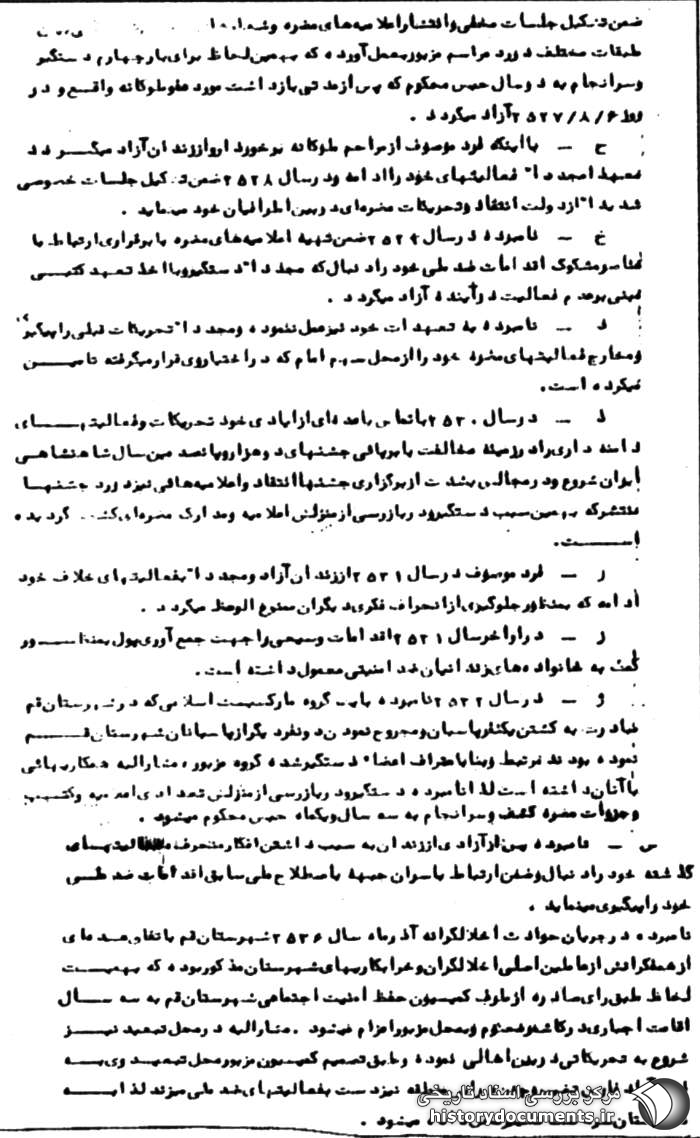 ضمن تشکیل جلسات مخفی و انتشار اعلامیه‌های مضره و
طبقات مختلف در مراسم مزبور بعمل آورده که بهمین لحاظ برای بار چهارم دستگیر
و سرانجام به دو سال حبس محکوم که پس از مدتی بازداشت مورد عفو ملوکانه واقع و در
۲۵۲۷/۸/۶ آزاد میگردد .
ح ـ با اینکه فرد موصوف از مراحم ملوکانه برخوردار و از زندان آزاد میگردد
مجدداً فعالیتهای خود را ادامه و در سال ۲۵۲۸ ضمن تشکیل جلسات خصوصی
شدیداً از دولت انتقاد و تحریکات مضره‌ای در بین اطرافیان خود مینماید .
خ ـ نامبرده در سال ضمن تهیه اعلامیه‌های مضره با برقراری ارتباط با
عناصر مشکوک اقدامات ضد ملی خود را دنبال که مجدداً دستگیر و با اخذ تعهد کتبی
مبنی بر عدم فعالیت در آینده آزاد میگردد .
د ـ نامبرده به تعهدات خود نیز عمل ننموده و مجدداً تحریکات قبلی را پیگیر
و مخارج فعالیتهای مضره خود را از محل سهم امام که در اختیار وی قرار میگرفته تامین
میکرده است.
ذ ـ در سال ۲۵۳۰ با تماس با عده‌ای از ایادی خود تحریکات و فعالیتهای
دامنه داری را در زمینه مخالفت با برپائی جشنهای دو هزار و پانصدمین سال شاهنشاهی
ایران شروع و در مجالس بشدت از برگزاری جشنها انتقاد و اعلامیه‌هائی نیز در مورد جشنها
منتشر که بهمین سبب دستگیر و در بازرسی از منزلش اعلامیه و مدارک مضره‌ای کشف گردیده
است.
ر ـ فرد موصوف در سال ۲۵۳۱ از زندان آزاد و مجدداً بفعالیتهای خلاف خود
ادامه که بمنظور جلوگیری از انحراف فکری دیگران ممنوع الوعظ میگردد .
ز ـ در اواخر سال ۲۵۳۱ اقدامات وسیعی را جهت جمع آوری پول بمنظور
کمک به خانواده‌های زندانیان ضد امنیتی معمول داشته است.
و ـ در سال ۲۵۳۲ نامبرده با یک گروه مارکسیست اسلامی که در شهرستان قم
مبادرت به کشتن یکنفر پاسبان و مجروح نمودن دو نفر دیگر از پاسبانان شهرستان قم
نموده بودند مرتبط و بنا باعتراف اعضاء دستگیر شده گروه مزبور مشارالیه همکاریهائی
با آنان داشته است لذا نامبرده دستگیر و در بازرسی از منزلش تعدادی اعلامیه و کتب
و جزوات مضره کشف و سرانجام به سه سال و یکماه حبس محکوم میشود .
س ـ نامبرده پس از آزادی از زندان به سبب داشتن افکار منحرف فعالیتهای
گذشته خود را دنبال و ضمن ارتباط با سران جبهه باصطلاح ملی سابق اقدامات ضد ملی
خود را پیگیری مینماید .
نامبرده در جریان حوادث اخلالگرانه آذر ماه سال ۲۵۳۶ شهرستان قم باتفاق عده‌ای
از همفکرانش از عاملین اصلی اخلالگران و خرابکاریهای شهرستان مذکور بوده که بهمین
لحاظ طبق رای صادره از طرف کمیسیون حفظ امنیت اجتماعی شهرستان قم به سه سال
اقامت اجباری در کاشمر محکوم و بمحل مزبور اعزام میشود . مشارالیه در محل تبعید نیز
شروع به تحریکاتی در بین اهالی نموده و طبق تصمیم کمیسیون مزبور محل تبعید وی به
منطقه نیز دست بفعالیتهای ضد ملی میزند لذا به
میشود .
مرکز بررسی اسناد تاریخی
historydocuments.ir